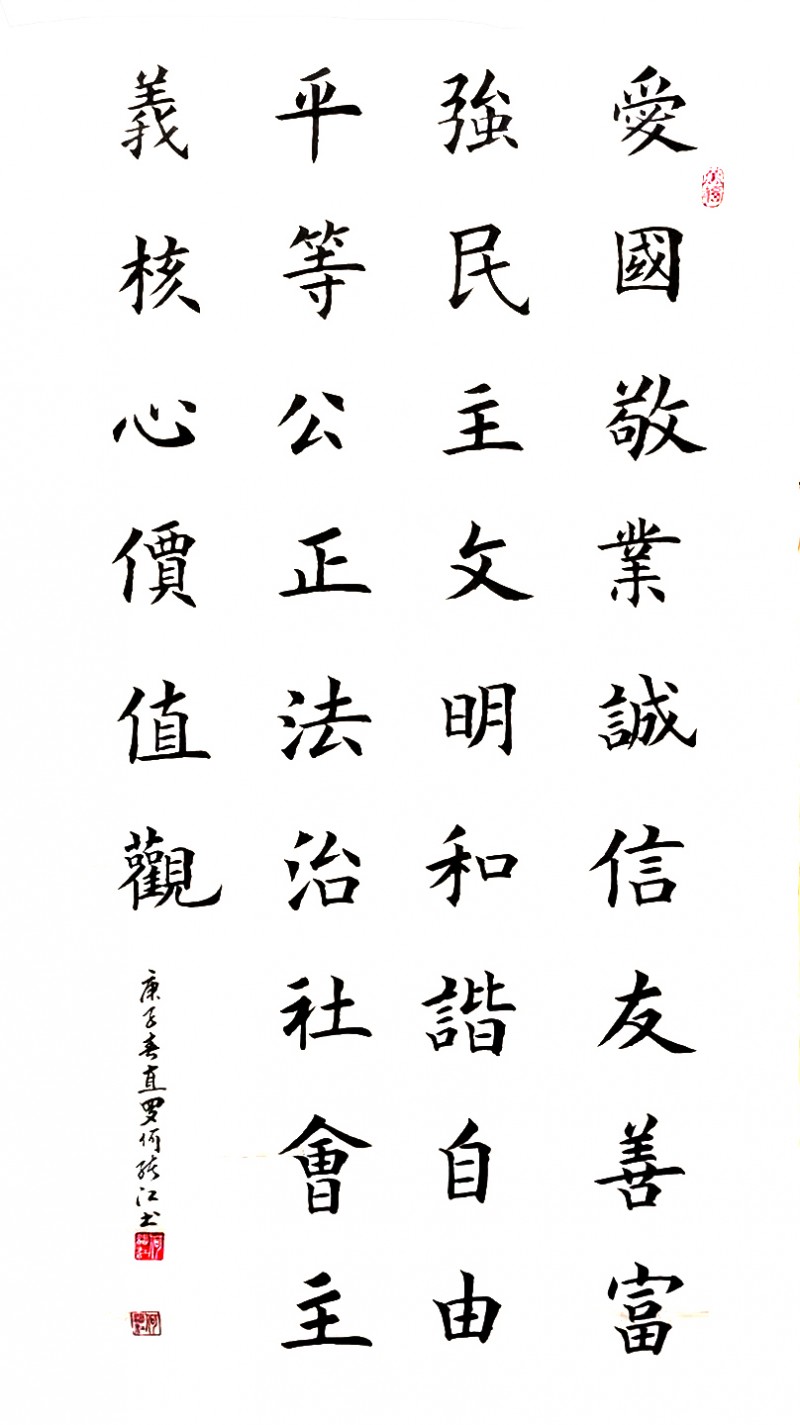 愛國敬業誠信友善富
強民主文明和諧自由
平等公正法治社會主
義核心價值觀
庚子春直罗何緒江书